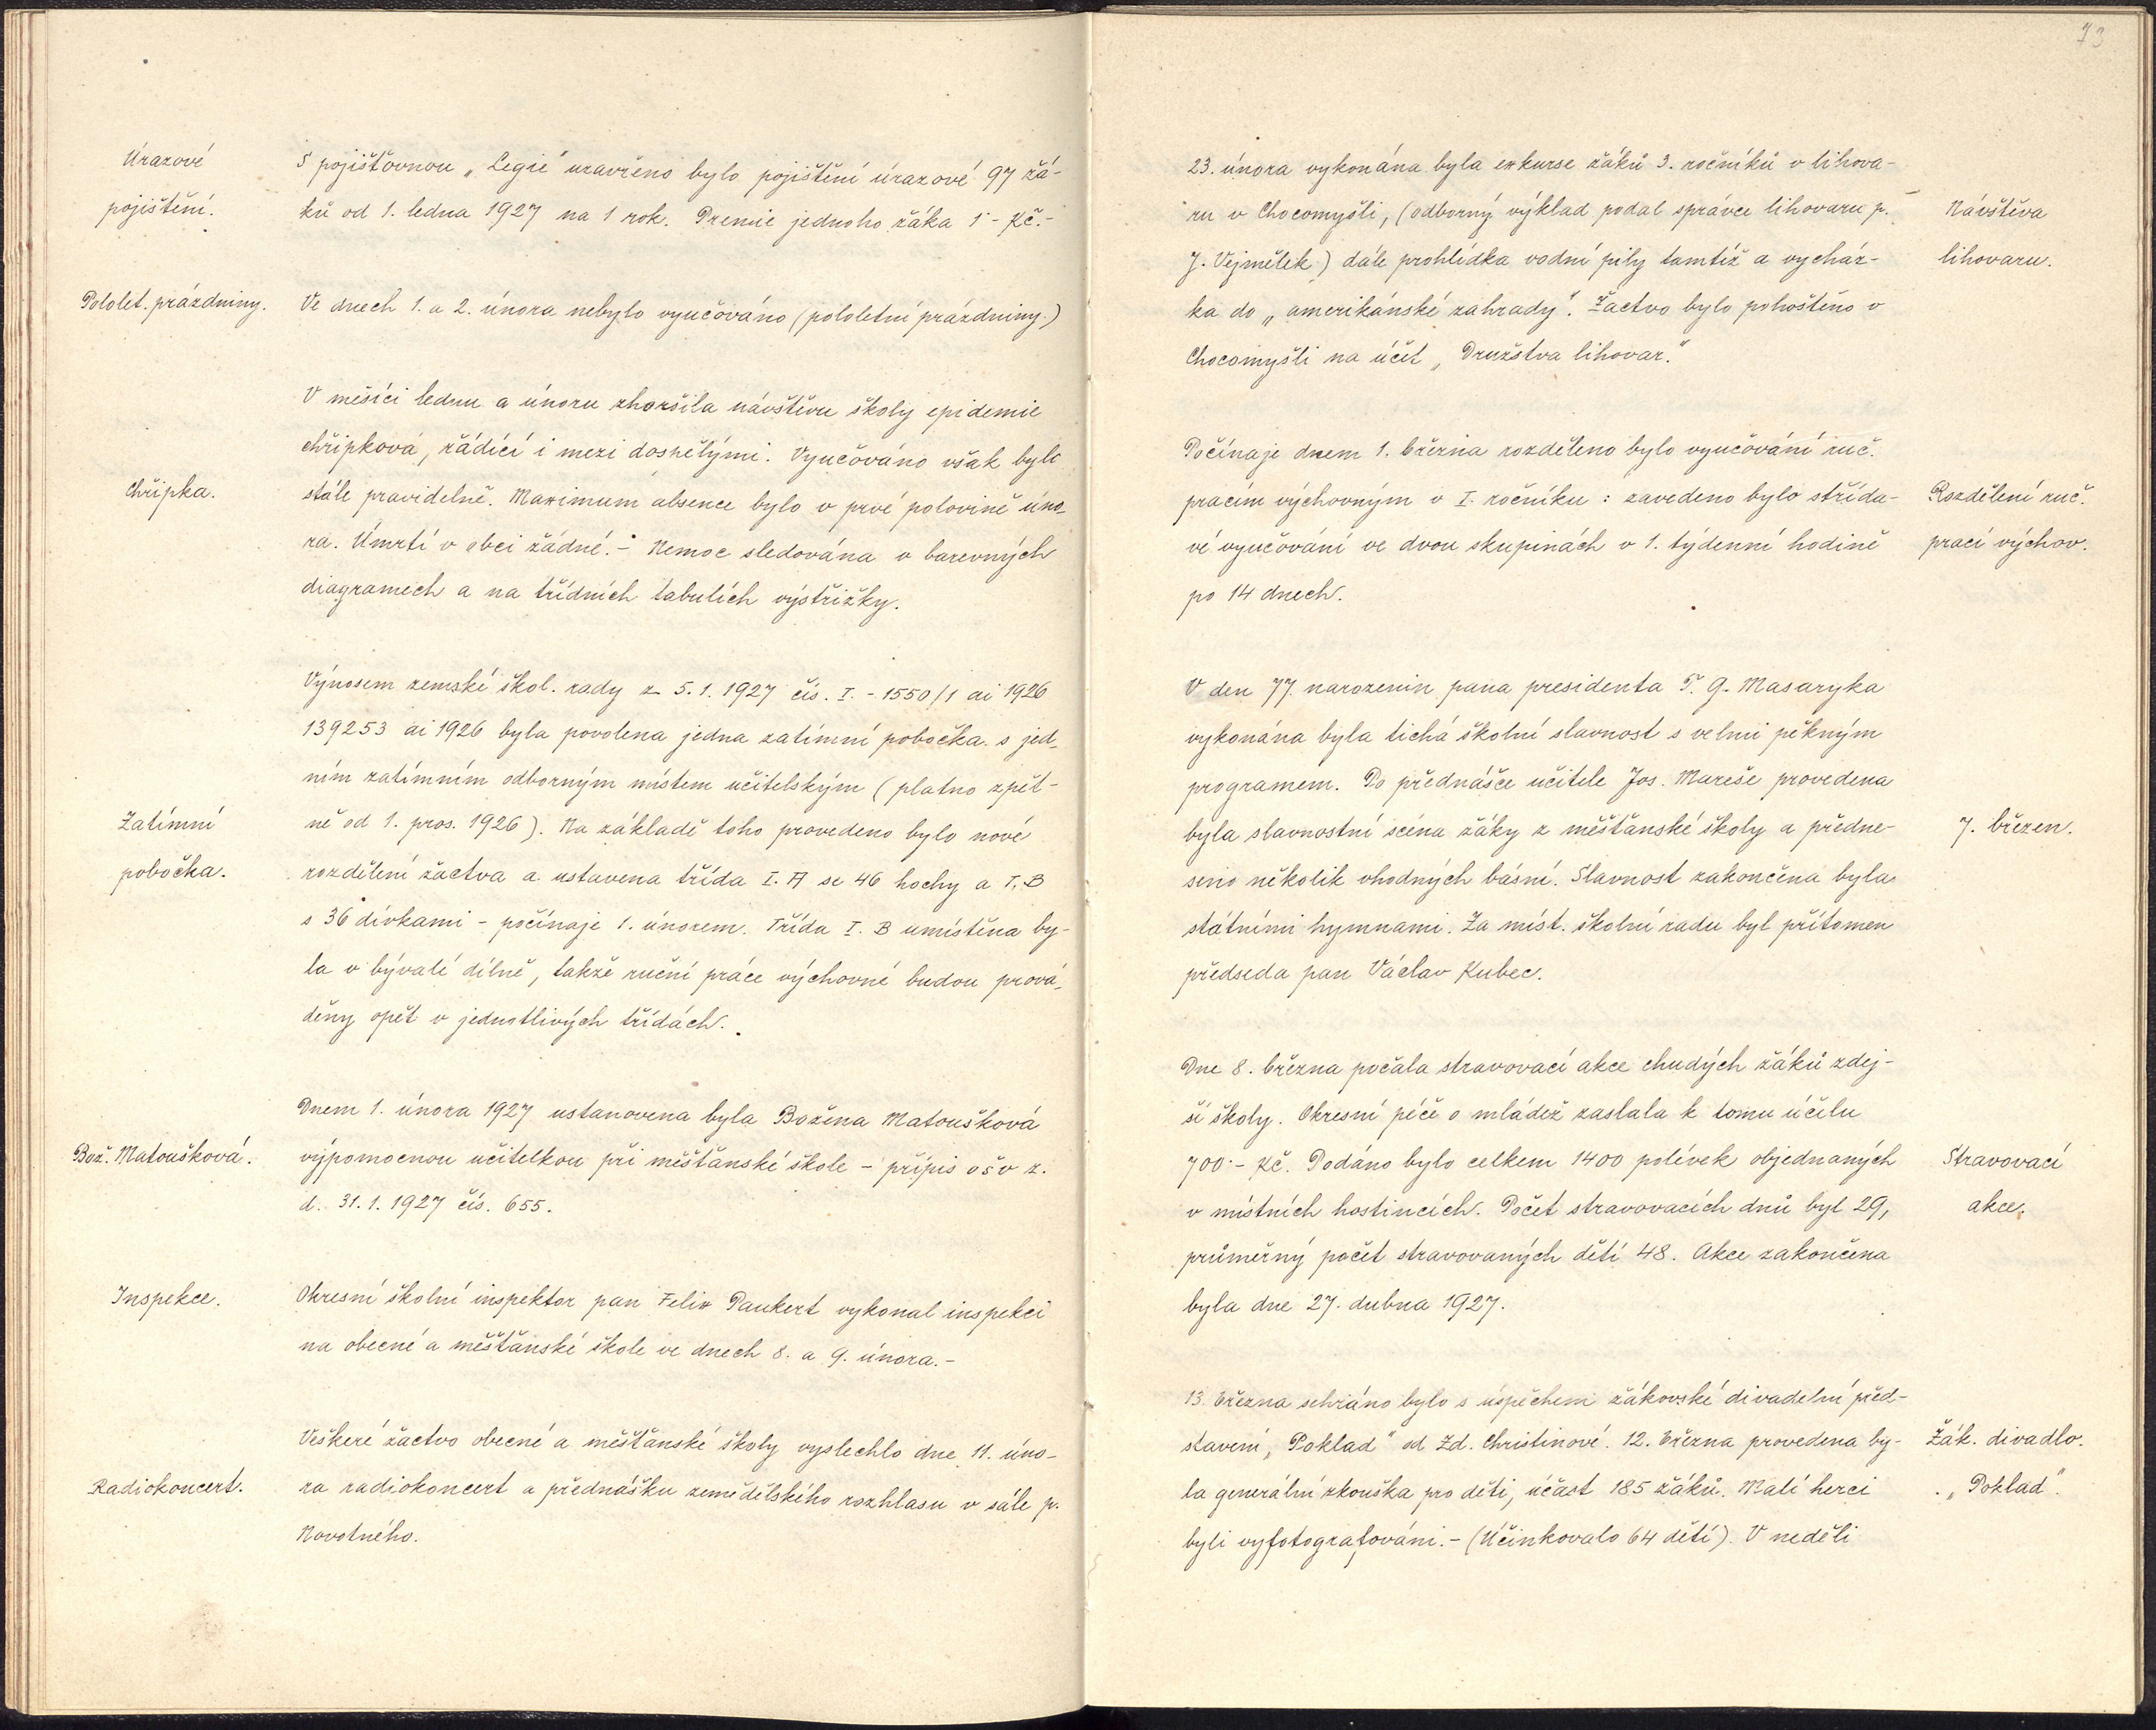 Úrazové
pojištění.
S pojišťovnou „Legie" uzavřeno bylo pojištění úrazové 97 žá-
ků od 1. ledna 1927 na 1 rok. Premie jednoho žáka 1·- Kč.-
Pololet. prázdniny.
Ve dnech 1. a 2. února nebylo vyučováno (pololetní prázdniny.)
V měsíci lednu a únoru zhoršila návštěvu školy epidemie
chřipková, řádící i mezi dospělými. Vyučováno však bylo
Chřipka.
stále pravidelně. Maximum absence bylo v prvé polovině úno-
ra. Úmrtí v obci žádné. - Nemoc sledována v barevných
diagramech a na třídních tabulích výstřižky.
Výnosem zemské škol. rady z 5. 1. 1927 čís. I. - 1550/1 ai 1926
139253 ai 1926 byla povolena jedna zatímní pobočka s jed-
ním zatímním odborným místem učitelským (platno zpět-
Zatímní
pobočka.
ně od 1. pros. 1926). Na základě toho provedeno bylo nové
rozdělení žactva a ustavena třída I. A se 46 hochy a I. B
s 36 dívkami - počínaje 1. únorem. Třída I. B umístěna by-
la v bývalé dílně, takže ruční práce výchovné budou prová-
děny opět v jednotlivých třídách.
Dnem 1. února 1927 ustanovena byla Božena Matoušková
Bož. Matoušková.
výpomocnou učitelkou při měšťanské škole - přípis ošv z.
d. 31. 1. 1927 čís. 655.
Inspekce.
Okresní školní inspektor pan Felix Paukert vykonal inspekci
na obecné a měšťanské škole ve dnech 8. a 9. února.-
Veškeré žactvo obecné a měšťanské školy vyslechlo dne 11. úno-
Radiokoncert.
ra radiokoncert a přednášku zemědělského rozhlasu v sále p.
Novotného.
73
23. února vykonána byla exkurse žáků 3. ročníku v lihova-
ru v Chocomyšli, (odborný výklad podal správce lihovaru p.
Návštěva
lihovaru.
J. Vejmělek) dále prohlídka vodní pily tamtéž a vycház-
ka do „amerikánské zahrady". Žactvo bylo pohoštěno v
Chocomyšli na účet „Družstva lihovar."
Počínaje dnem 1. března rozděleno bylo vyučování ruč.
pracím výchovným v I. ročníku: zavedeno bylo střída-
Rozdělení ruč.
prací výchov.
vé vyučování ve dvou skupinách v 1. týdenní hodině
po 14 dnech.
V den 77. narozenin pana presidenta T. G. Masaryka
vykonána byla tichá školní slavnost s velmi pěkným
programem. Po přednášce učitele Jos. Mareše provedena
byla slavnostní scéna žáky z měšťanské školy a předne-
7. březen.
seno několik vhodných básní. Slavnost zakončena byla
státními hymnami. Za míst. školní radu byl přítomen
předseda pan Václav Kubec.
Dne 8. března počala stravovací akce chudých žáků zdej-
ší školy. Okresní péče o mládež zaslala k tomu účelu
700·- Kč. Podáno bylo celkem 1400 polévek objednaných
Stravovací
akce.
v místních hostincích. Počet stravovacích dnů byl 29,
průměrný počet stravovaných dětí 48. Akce zakončena
byla dne 27. dubna 1927.
13. března sehráno bylo s úspěchem žákovské divadelní před-
stavení „Poklad" od Zd. Christinové. 12. března provedena by-
Žák. divadlo.
„Poklad".
la generální zkouška pro děti, účast 185 žáků. Malí herci
byli vyfotografováni. - (Účinkovalo 64 dětí). V neděli